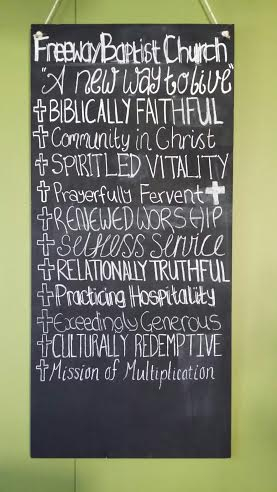 Freeway Baptist Church
"A new way to live"
BIBLICALLY FAITHFUL
Community in Christ
SPIRIT LED VITALITY
Prayerfully Fervent
RENEWED WORSHIP
Selfless Service
RELATIONALLY TRUTHFUL
Practicing Hospitality
Exceedingly Generous
CULTURALLY REDEMPTIVE
Mission of Multiplication